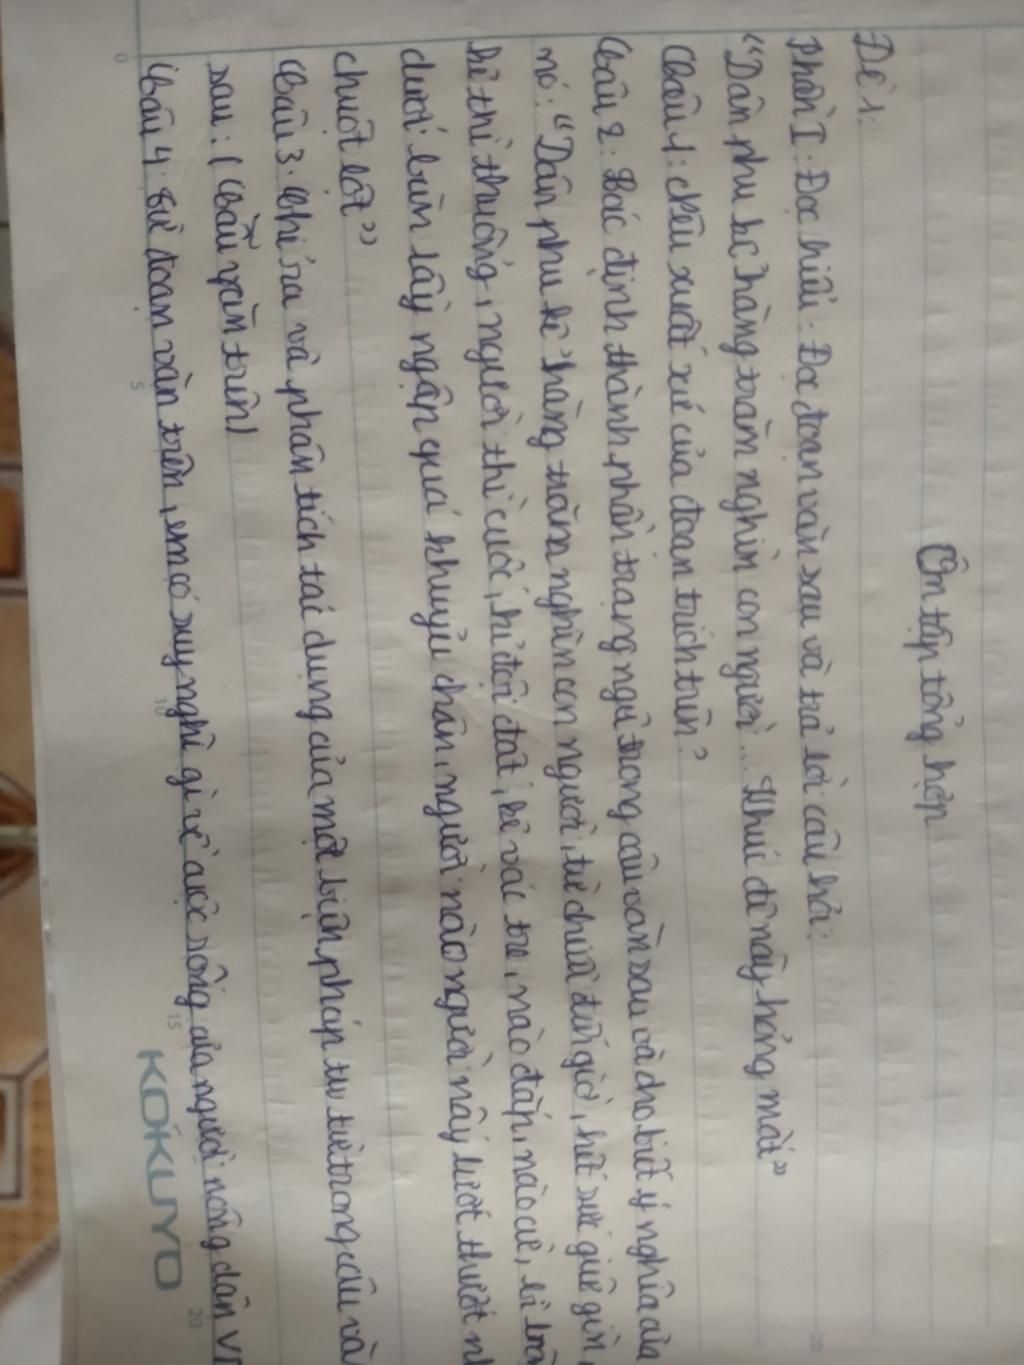 Ôn tập tổng hợp
Đề 1:
Phần I. Đọc hiểu. Đọc đoạn văn sau và trả lời câu hỏi:
"Dân phu kể hàng trăm nghìn con người... Khúc đê này hỏng mất"
Câu 1: Nêu xuất xứ của đoạn trích trên?
Câu 2: Xác định thành phần trạng ngữ trong câu văn sau và cho biết ý nghĩa của
nó: "Dân phu kể hàng trăm nghìn con người, từ chiều đến giờ, hết sức giữ gìn,
kẻ thì thuổng, người thì cuốc, kẻ đội đất, kẻ vác tre, nào đắp, nào cừ, bì bõm
dưới bùn lầy ngập quá khuỷu chân, người nào người nấy lướt thướt như
chuột lột"
Câu 3. Chỉ ra và phân tích tác dụng của một biện pháp tu từ trong câu văn
sau: (Câu văn trên)
Câu 4. Từ đoạn văn trên, em có suy nghĩ gì về cuộc sống của người nông dân
KOKUYO
0
5
10
15
20